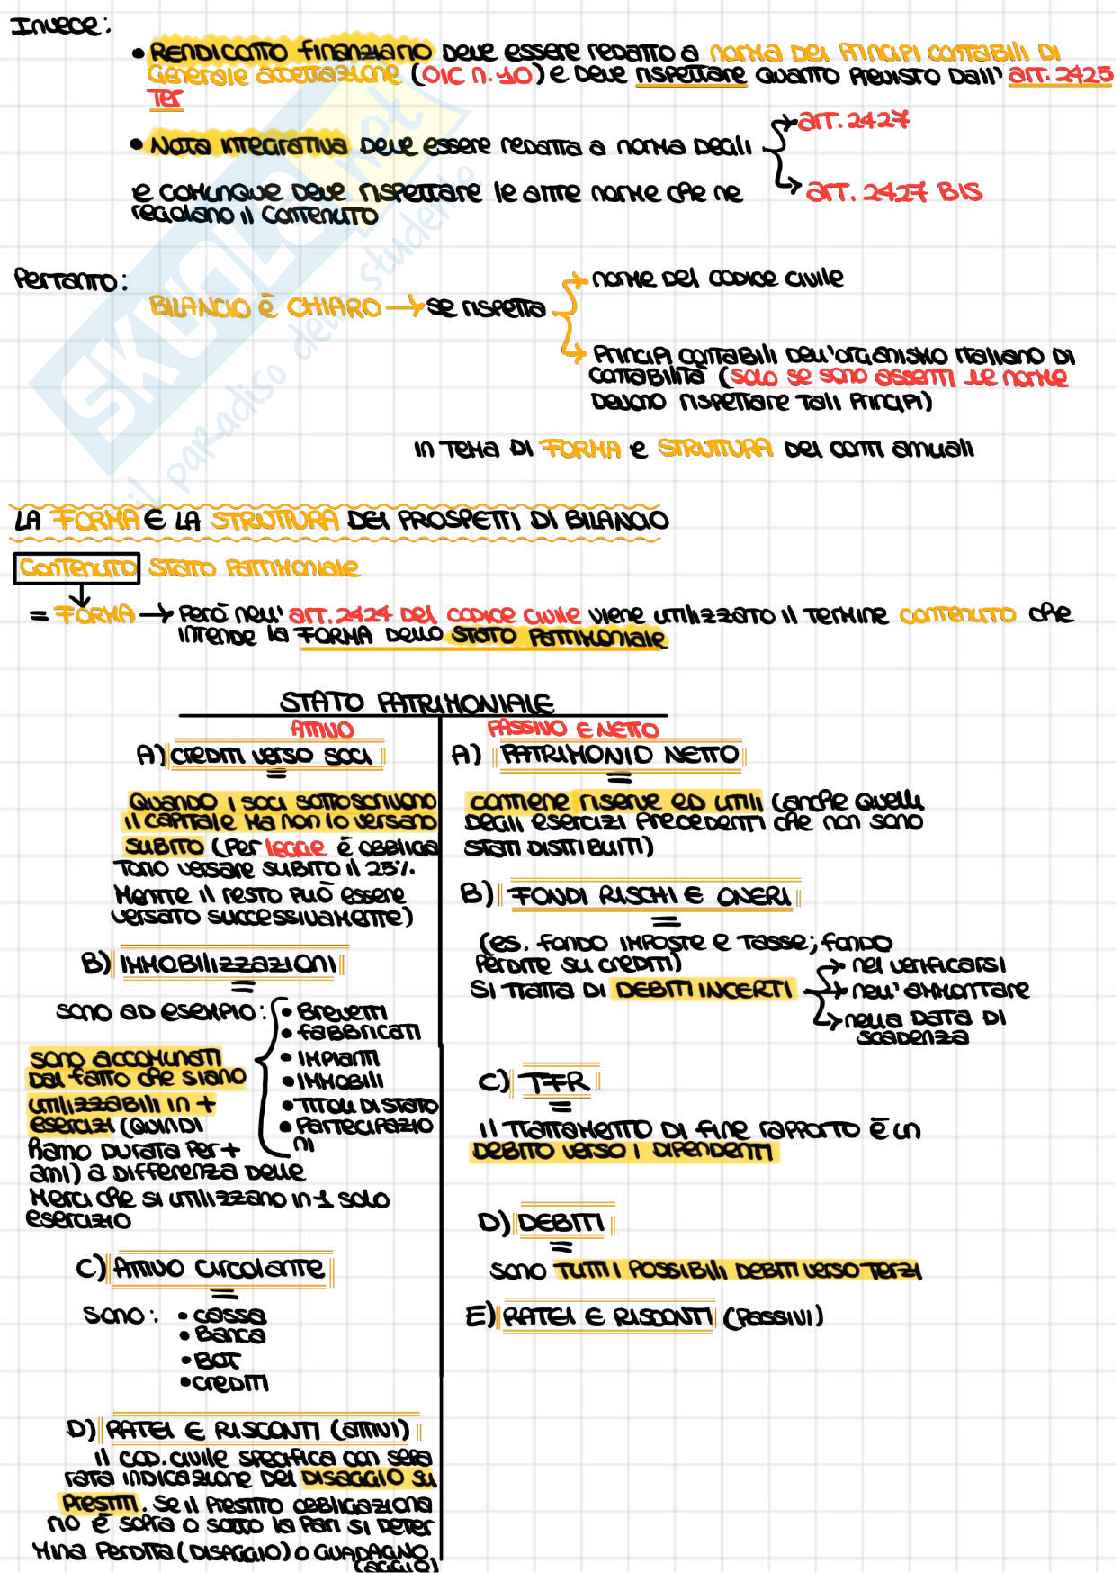 Invece:
• RENDICONTO finanziario DEVE ESSERE REDATTO a norma DEI PRINCIPI contabili DI
Generale accettazione (OIC n. 10) e DEVE RISPETTARE quanto PREVISTO Dall' art. 2425
TER
• Nota integrativa DEVE essere REDATTA a norma DEGLI
art. 2427
art. 2427 BIS
e comunque DEVE RISPETTARE le altre norme che ne
regolano il contenuto
Pertanto:
norme DEL CODICE civile
BILANCIO È CHIARO → se rispetta
Principi contabili DELL'organismo italiano DI
contabilità (solo se sono assenti le norme
Devono rispettare tali principi)
in tema DI FORMA e STRUTTURA DEI conti annuali
LA FORMA E LA STRUTTURA DEI PROSPETTI DI BILANCIO
Contenuto STATO Patrimoniale
= FORMA → Però nell' art. 2424 DEL CODICE civile viene utilizzato il TERMINE contenuto che
intende la FORMA DELLO STATO Patrimoniale
STATO PATRIMONIALE
ATTIVO
PASSIVO E NETTO
A) CREDITI verso soci
Quando i soci sottoscrivono
il capitale ma non lo versano
SUBITO (per legge è obbliga
torio versare subito il 25%.
Mentre il resto può essere
versato successivamente)
B) IMMOBILIZZAZIONI
sono ad esempio:
• Brevetti
• fabbricati
• impianti
• immobili
• TITOLI DI STATO
• Partecipazio
ni
sono accomunati
Dal fatto che siano
utilizzabili in +
esercizi (QUINDI
hanno durata per +
anni) a differenza delle
Merci che si utilizzano in 1 solo
esercizio
C) Attivo circolante
sono: • cassa
• Banca
• BOT
• crediti
D) RATEI E RISCONTI (attivi)
il COD. civile specifica con sepa
rata indicazione del DISAGGIO su
prestiti. Se il prestito obbligaziona
no è sopra o sotto la pari si deter
mina perdita (DISAGGIO) o GUADAGNO
(AGGIO)
A) PATRIMONIO NETTO
contiene riserve ed utili (anche quelli
degli esercizi precedenti che non sono
stati DISTRIBUITI)
B) FONDI RISCHI E ONERI
(es. fondo imposte e tasse; fondo
perdite su crediti)
SI TRATTA DI DEBITI INCERTI
nel verificarsi
nell'ammontare
nella DATA DI
scadenza
C) TFR
Il TRATTAMENTO DI fine rapporto è un
DEBITO verso i dipendenti
D) DEBITI
sono TUTTI I POSSIBILI DEBITI VERSO TERZI
E) RATEI E RISCONTI (passivi)
SKUOLA.net
il paradiso dello studente